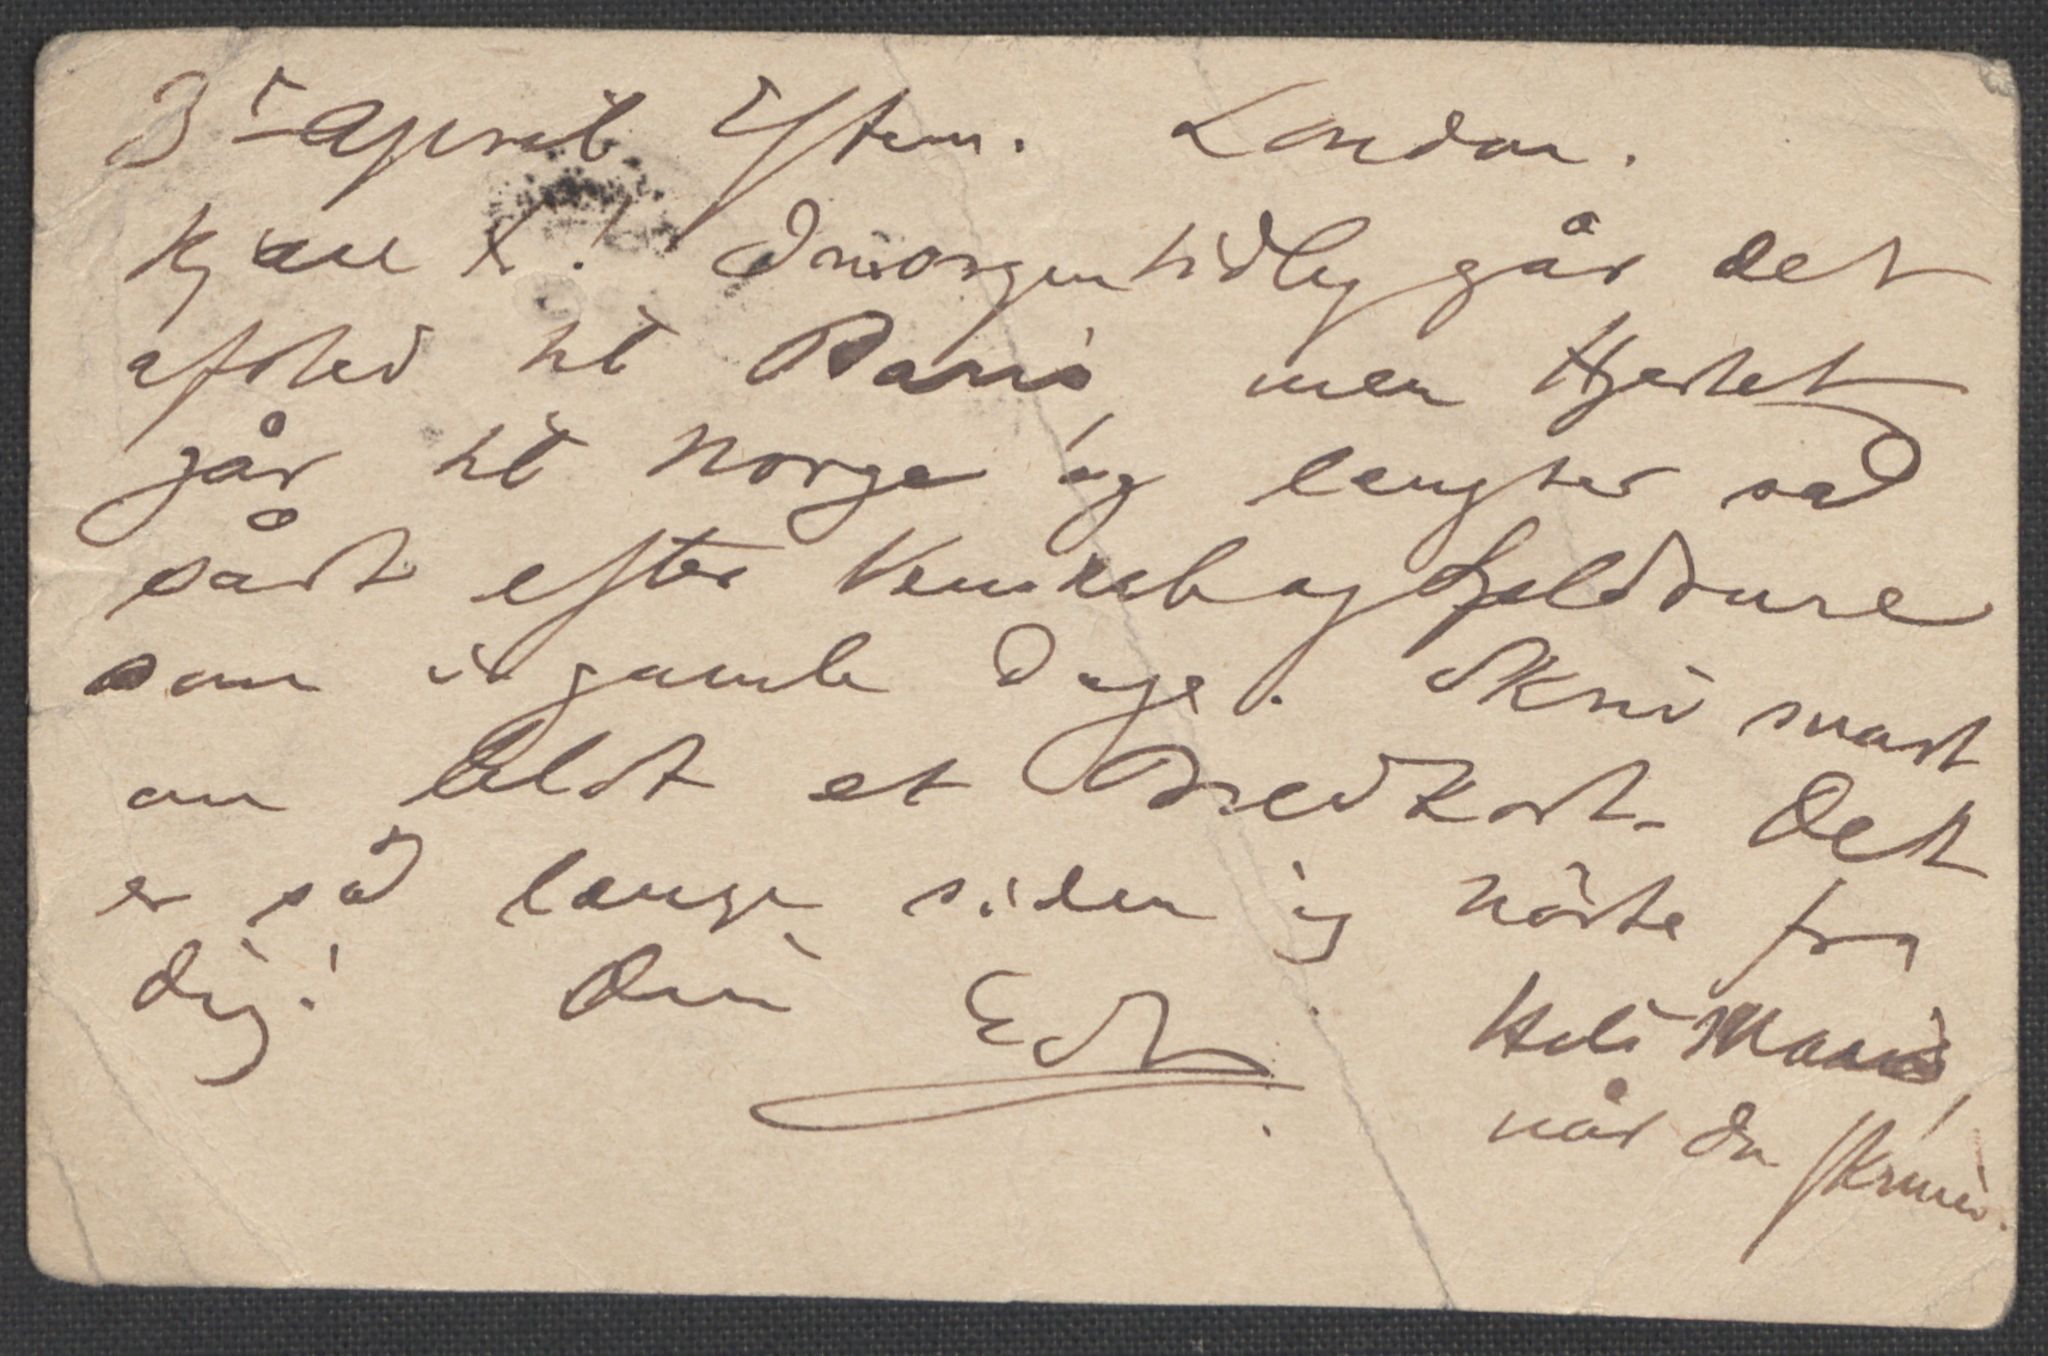 3d April Eftm. London.
Kjære X! Imorgen tidlig går det
afsted til Paris, men Hjertet
går til Norge og længter så
sårt efter Venskab og Fjeldture
som i gamle Dage. Skriv snart
om blot et Brevkort. Det
er så længe siden jeg hörte fra
dig! Din Edv
Hils Marie,
når du skriver.